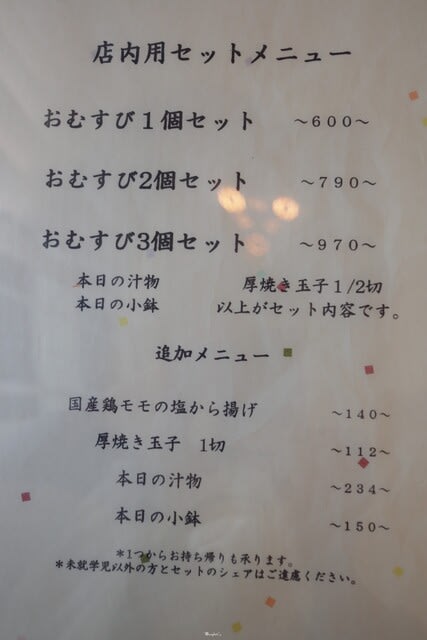 店内用セットメニュー
おむすび１個セット　～６００～
おむすび2個セット　～７９０～
おむすび3個セット　～９７０～
本日の汁物　厚焼き玉子１/2切
本日の小鉢　以上がセット内容です。
追加メニュー
国産鶏モモの塩から揚げ　～１４０～
厚焼き玉子　1切　～１１２～
本日の汁物　～２３４～
本日の小鉢　～１５０～
＊1つからお持ち帰りも承ります。
＊未就学児以外の方とセットのシェアはご遠慮ください。